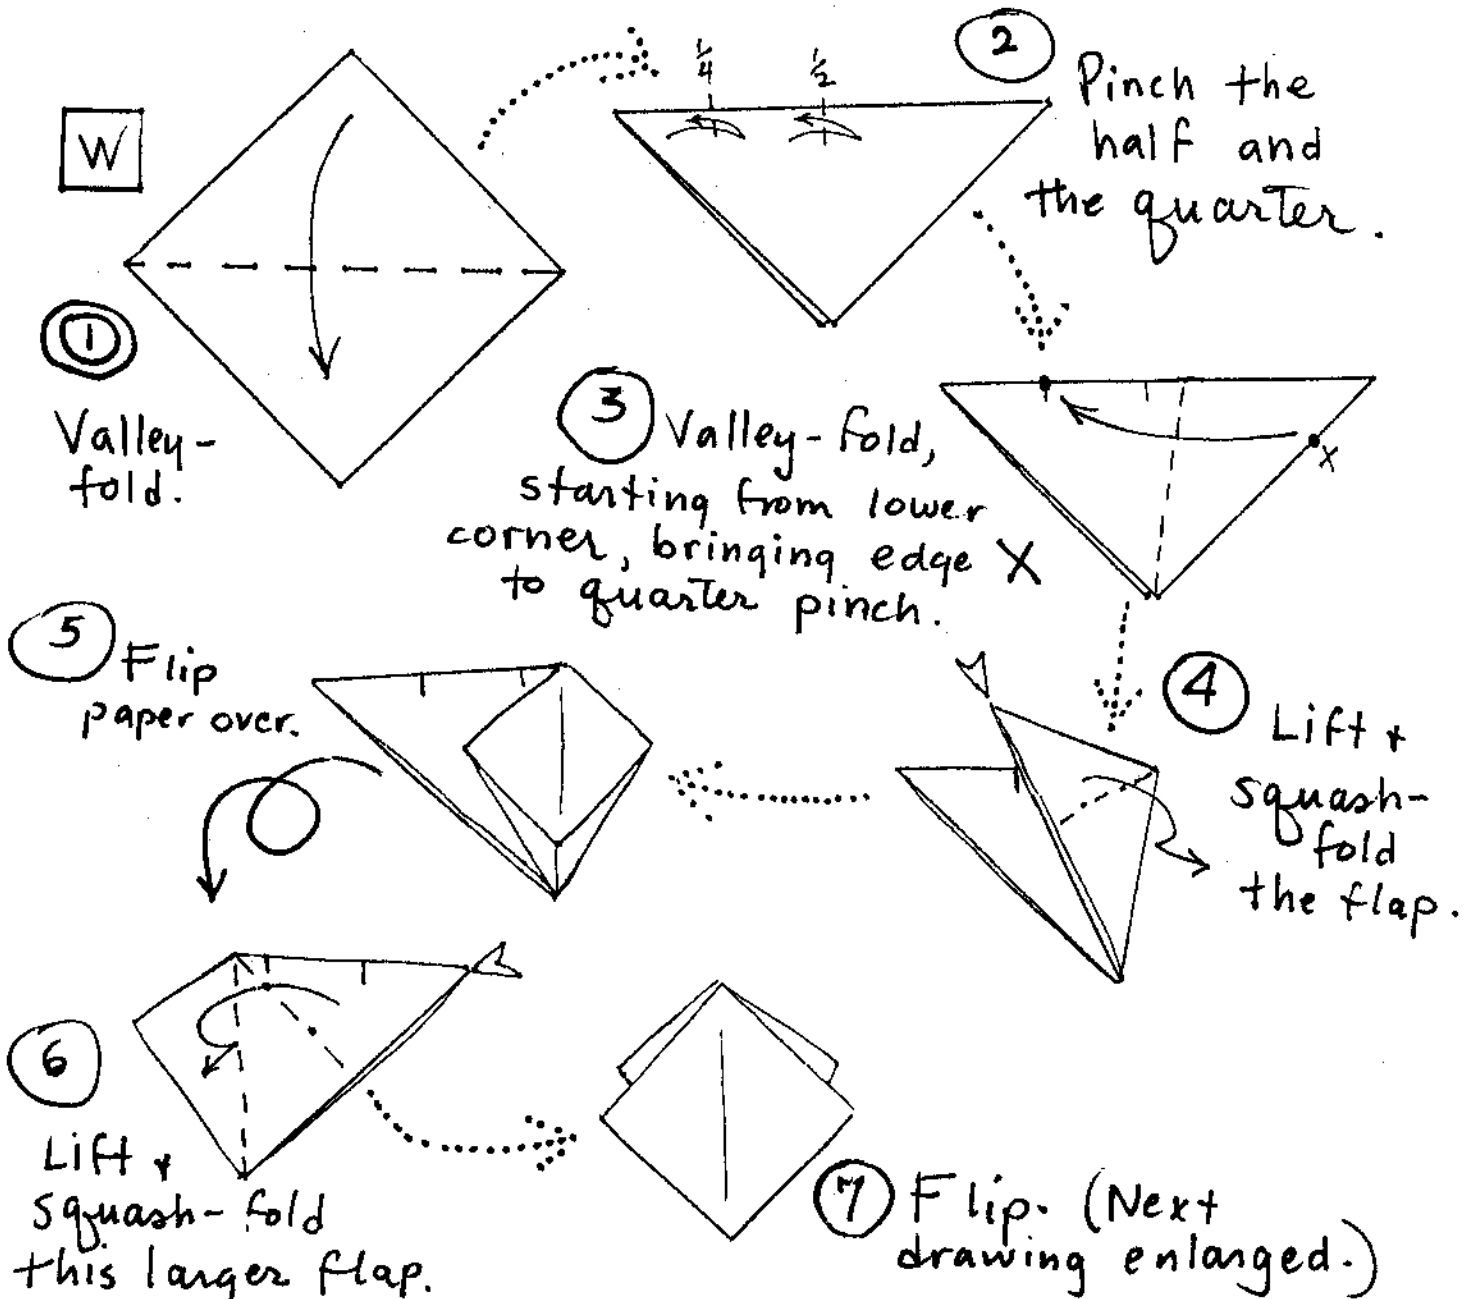 W
1
Valley-
fold.
1/4
1/2
2
Pinch the
half and
the quarter.
3
Valley-fold,
starting from lower
corner, bringing edge X
to quarter pinch.
X
4
Lift +
squash-
fold
the flap.
5
Flip
paper over.
6
Lift +
squash-fold
this larger flap.
7
Flip. (Next
drawing enlarged.)